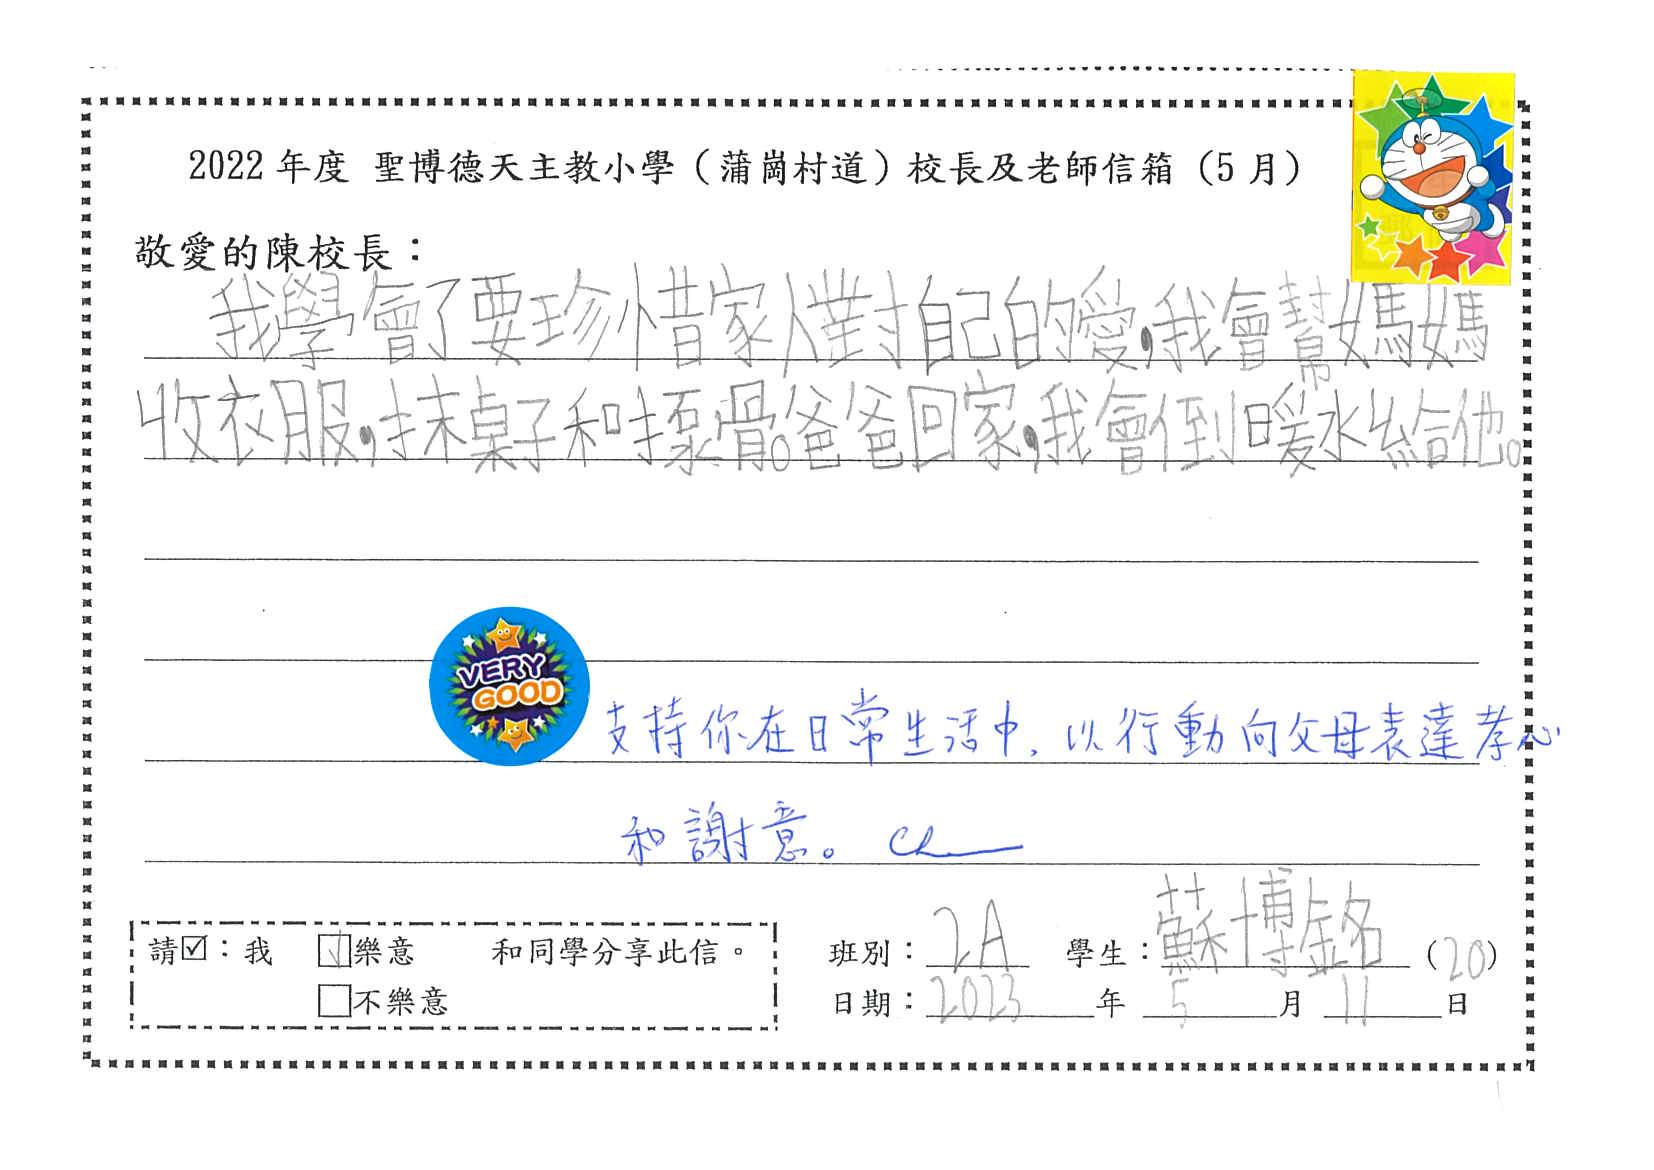 2022 年度 聖博德天主教小學（蒲崗村道）校長及老師信箱（5 月）
敬愛的陳校長：
我學會了要珍惜家人對自己的愛，我會幫媽媽
收衣服，抹桌子和捶骨。爸爸回家，我會倒暖水給他。
VERY
GOOD
支持你在日常生活中，以行動向父母表達孝心
和謝意。
請☑：我 ☑樂意 和同學分享此信。
□不樂意
班別：2A 學生：蘇博銘（20）
日期：2023 年 5 月 11 日